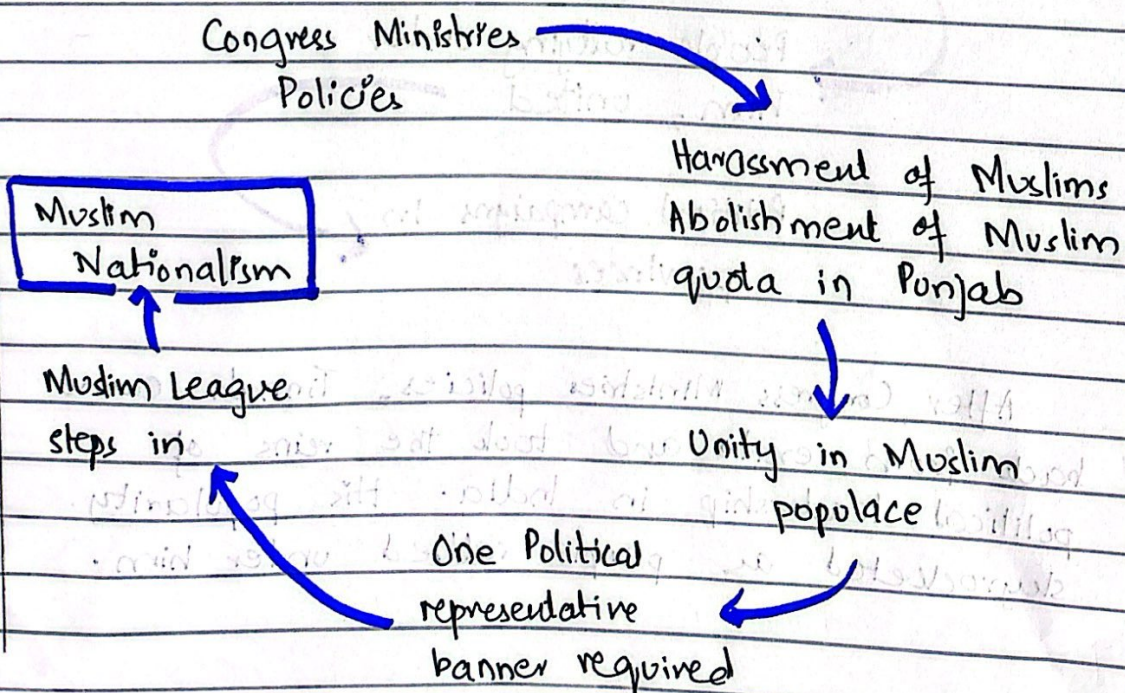 Congress Ministries
Policies
Harassment of Muslims
Abolishment of Muslim
quota in Punjab
Unity in Muslim
populace
One Political
representative
banner required
Muslim League
steps in
Muslim
Nationalism